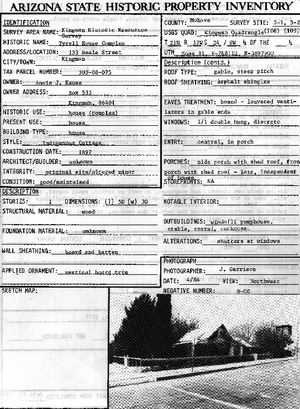 ARIZONA STATE HISTORIC PROPERTY INVENTORY
IDENTIFICATION
SURVEY AREA NAME: Kingman Historic Resources Survey
HISTORIC NAME: Tyrell House Complex
ADDRESS/LOCATION: 133 Beale Street
CITY/TOWN: Kingman
TAX PARCEL NUMBER: 303-08-075
OWNER: Annie J.
OWNER ADDRESS: Box 535
Kingman, 86401
HISTORIC USE: house (complex)
PRESENT USE: house
BUILDING TYPE: house
STYLE: Cottage
CONSTRUCTION DATE: 1897
ARCHITECT/BUILDER: unknown
INTEGRITY: original site/altered minor
CONDITION: good/maintained
DESCRIPTION
STORIES: 1 DIMENSIONS: (l) 50 (w) 30
STRUCTURAL MATERIAL: wood
FOUNDATION MATERIAL: unknown
WALL SHEATHING: board and batten
APPLIED ORNAMENT: vertical board trim
SKETCH MAP:
COUNTY: Mohave SURVEY SITE:
USGS QUAD: Kingman Quadrangle
T 21N R 17W S 24 / SW ¼ OF THE ¼
UTM Zone 11,
Description (cont.)
ROOF TYPE: gable, steep pitch
ROOF SHEATHING: asphalt shingles
EAVES TREATMENT: boxed - louvered ventilators in gable ends
WINDOWS: 1/1 double hung, discrete
ENTRY: central, in porch
PORCHES: side porch with shed roof, front porch with shed roof - late, independent of house
STOREFRONTS: NA
NOTABLE INTERIOR:
OUTBUILDINGS: windmill pumphouse, stable, corral,
ALTERATIONS: shutters at windows
PHOTOGRAPH
PHOTOGRAPHER: J. Garrison
DATE: 4/84 VIEW: Northwest
NEGATIVE NUMBER: